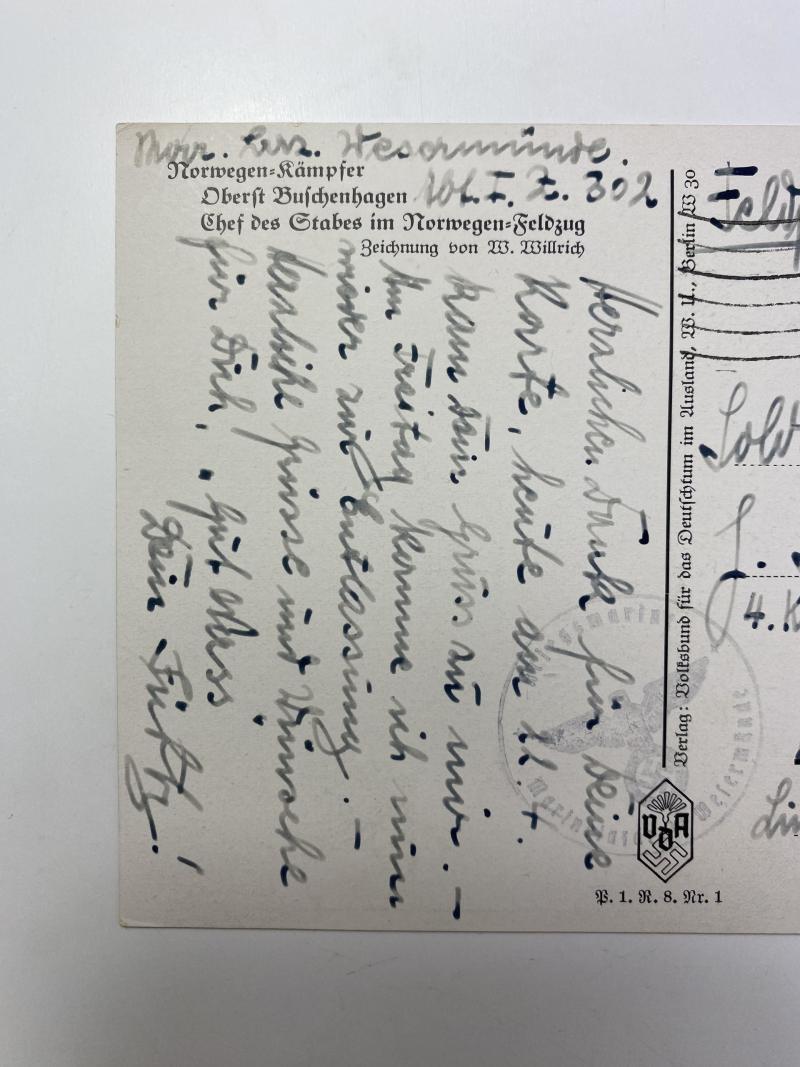 Marr. Laz. Wesermünde.
Norwegen-Kämpfer
Oberst Buschenhagen
Abt. I. Z. 302
Chef des Stabes im Norwegen-Feldzug
Zeichnung von W. Willrich
Herzlichen Dank für Deine
Karte, heute am
kam Dein Gruss zu mir. –
Am Freitag komme ich nun
wieder zur Entlassung. –
Herzliche Grüsse und Wünsche
für Dich, „Gut Nass"
Dein
Verlag: Volksbund für das Deutschtum im Ausland, W. U., Berlin W 30
VDA
P. 1. R. 8. Nr. 1
Kriegsmarine
Wesermünde
Feldp
Sold
4. K